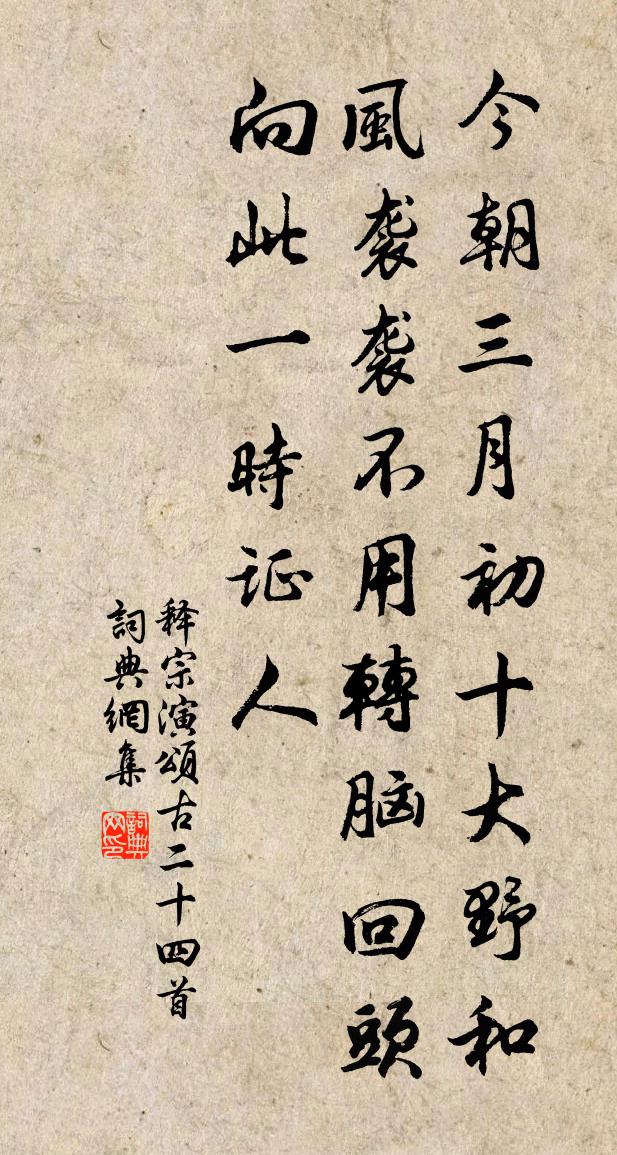 今朝三月初十大野和
風袭袭不用轉脑回頭
向此一時证人
释宗演頌古二十四首
詞典網集
詞典网印